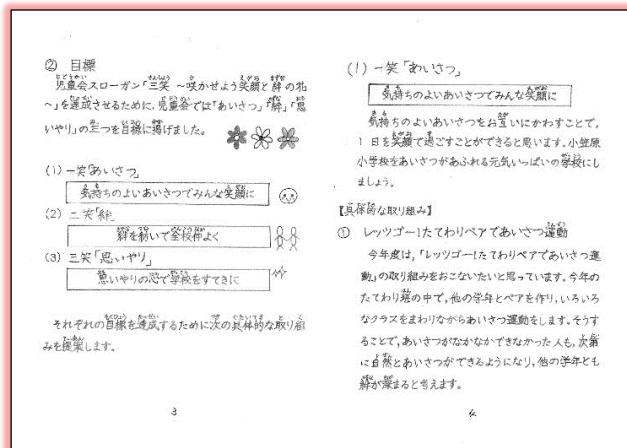 ② 目標
児童会スローガン「三笑 ～咲かせよう笑顔と絆の花
～」を達成させるために、児童会では「あいさつ」「絆」「思
いやり」の三つを目標に掲げました。
(1) 一笑「あいさつ」
気持ちのよいあいさつでみんな笑顔に
(2) 二笑「絆」
絆を紡いで全校仲よく
(3) 三笑「思いやり」
思いやりの心で学校をすてきに
それぞれの目標を達成するために次の具体的な取り組
みを提案します。
3
(1) 一笑「あいさつ」
気持ちのよいあいさつでみんな笑顔に
気持ちのよいあいさつをお互いにかわすことで、
1日を笑顔で過ごすことができると思います。小笠原
小学校をあいさつがあふれる元気いっぱいの学校にし
ましょう。
【具体的な取り組み】
① レッツゴー!たてわりペアであいさつ運動
今年度は、「レッツゴー!たてわりペアであいさつ運
動」の取り組みをおこないたいと思っています。今年の
たてわり班の中で、他の学年とペアを作り、いろいろ
なクラスをまわりながらあいさつ運動をします。そうす
ることで、あいさつがなかなかできなかった人も、次第
に自然とあいさつができるようになり、他の学年とも
絆が深まると考えます。
4